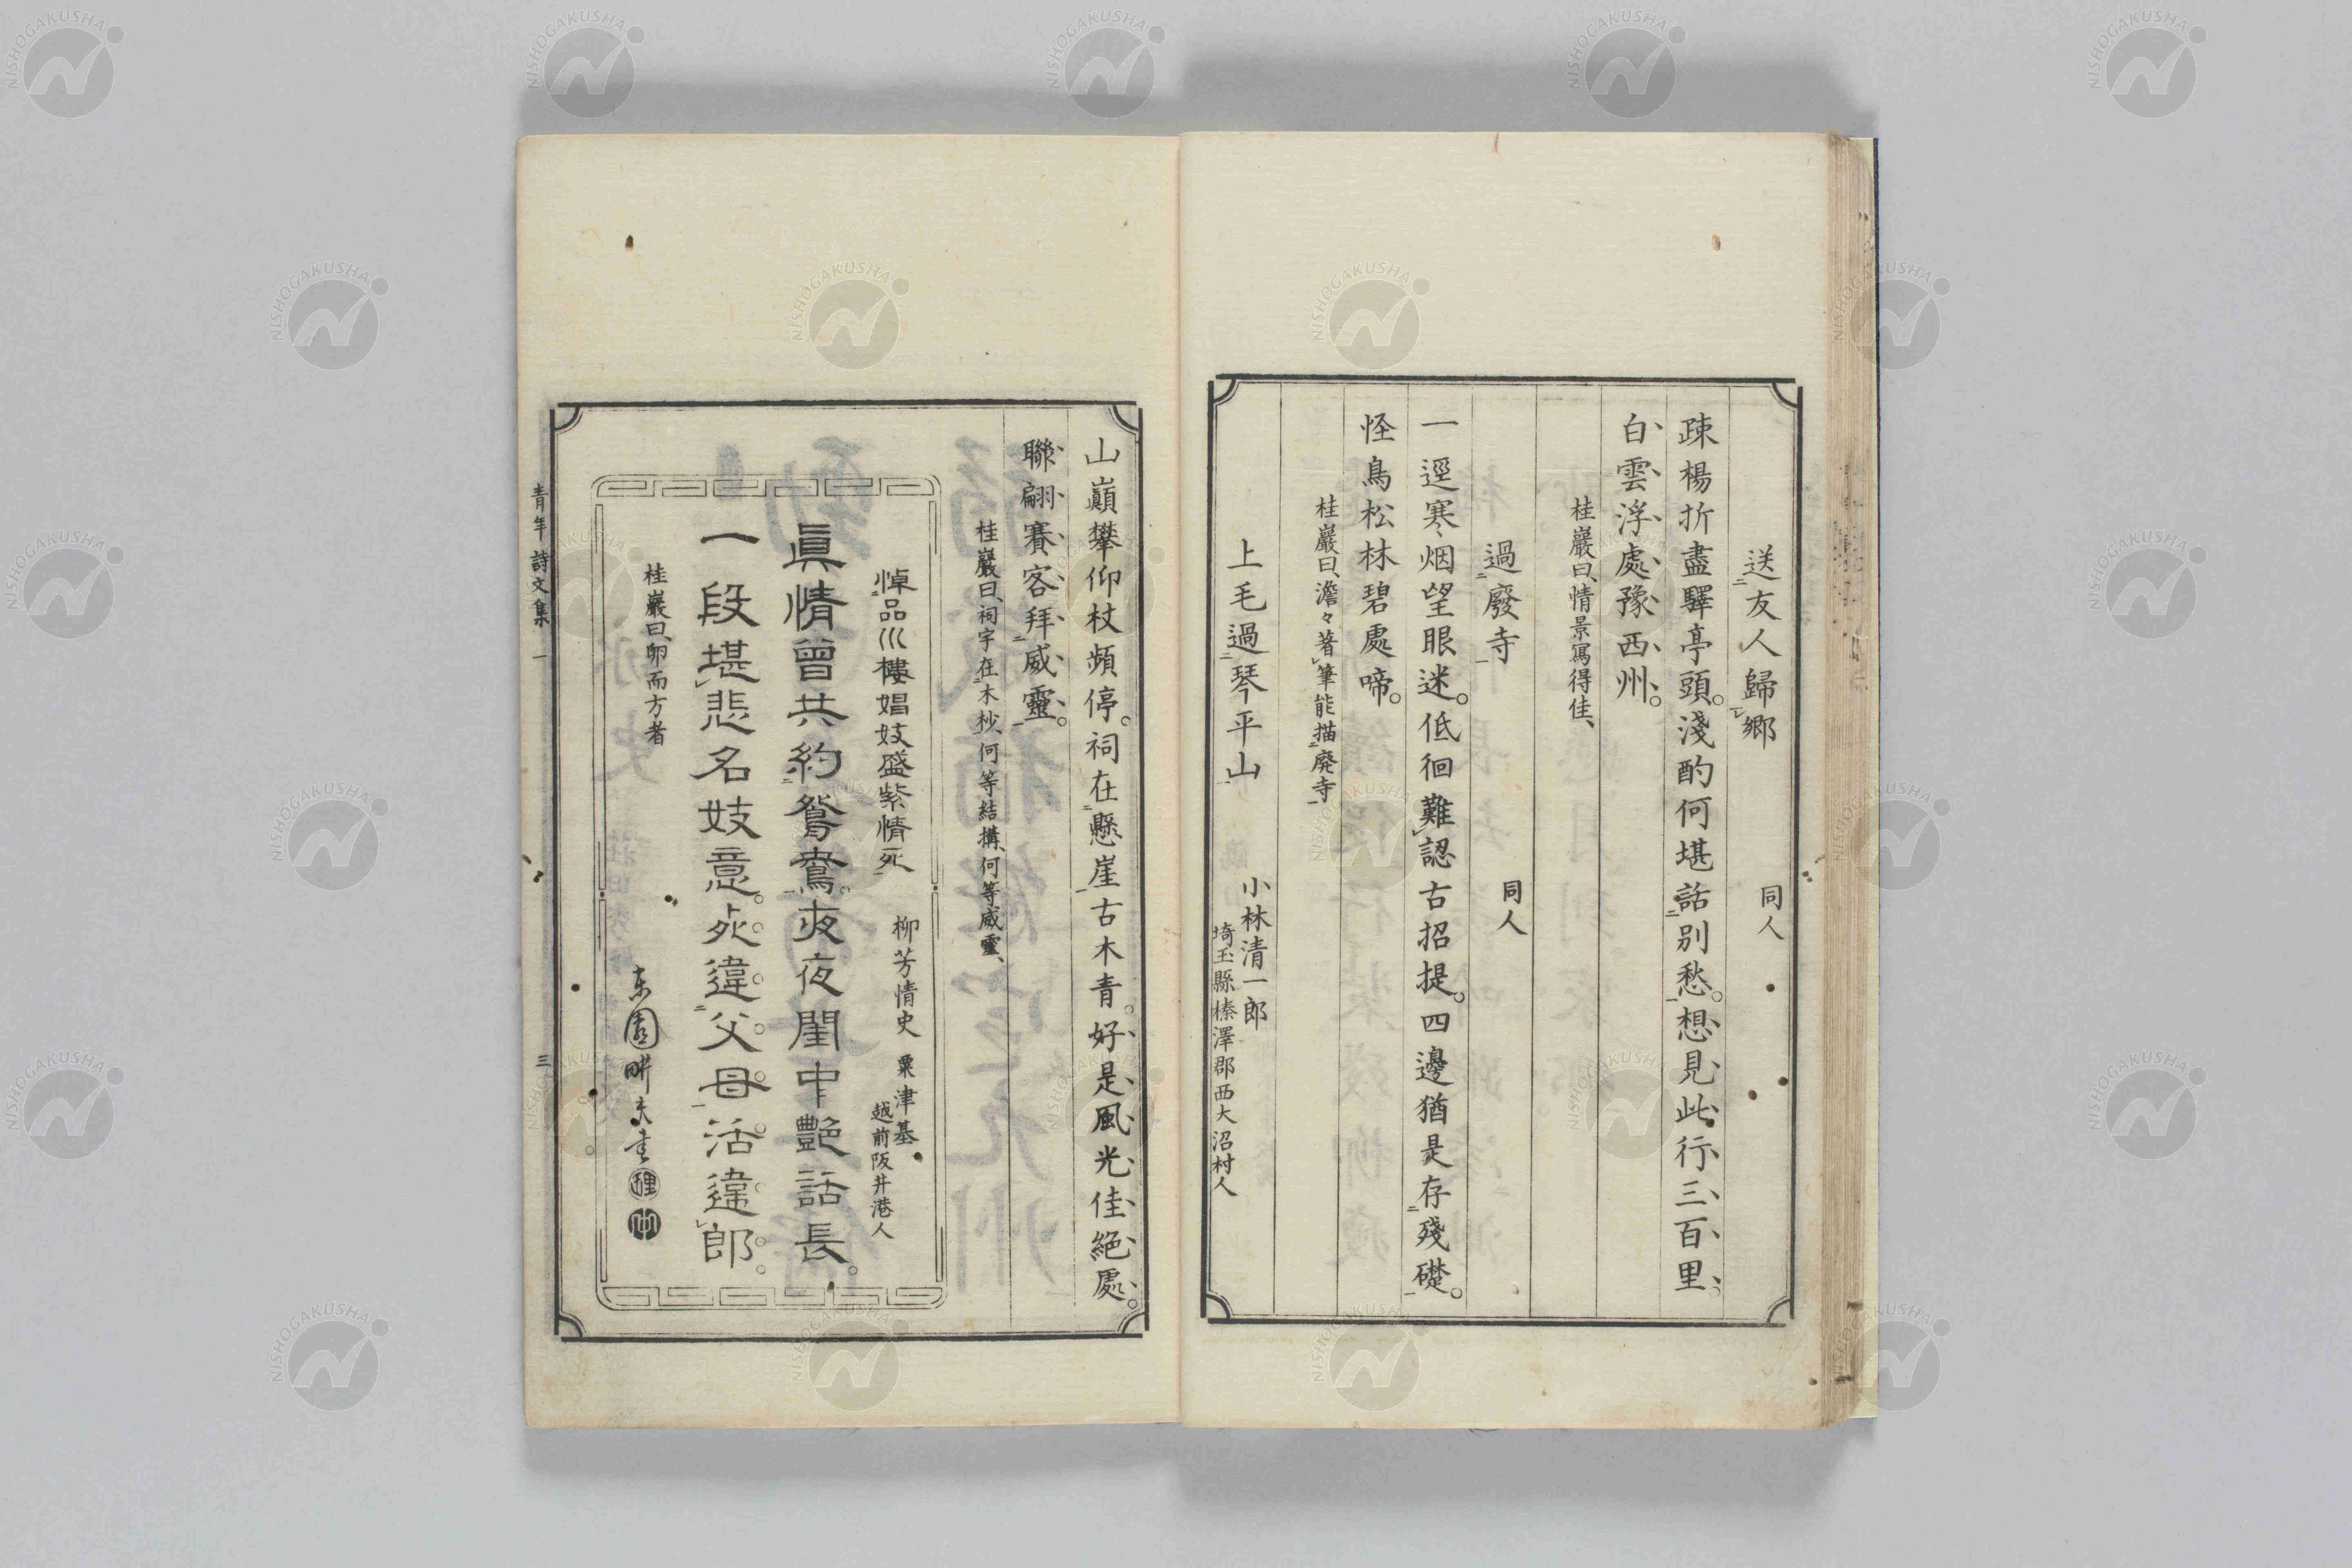 送友人歸鄉 同人
疎楊折盡驛亭頭。淺酌何堪話別愁。想見此行三百里、
白雲浮處豫西州。
桂巖曰、情景寫得佳、
過廢寺 同人
一逕寒烟望眼迷。低徊難認古招提。四邊猶是存殘礎。
怪鳥松林碧處啼。
桂巖曰、澹々著筆能描廢寺
上毛過琴平山 小林清一郎
埼玉縣榛澤郡西大沼村人
山巔攀仰杖頻停。祠在懸崖古木青。好是風光佳絕處。
聯翩賽客拜威靈。
桂巖曰、祠宇在木杪、何等結構、何等威靈、
悼品川樓娼妓盛紫情死 柳芳情史 粟津基
越前阪井港人
眞情曾共約鴛鴦。夜夜閨中艷話長。
一段堪悲名妓意。死違父母活違郎。
桂巖曰、卯而方者
東園畊夫書
青年詩文集 一 三
NISHOGAKUSHA